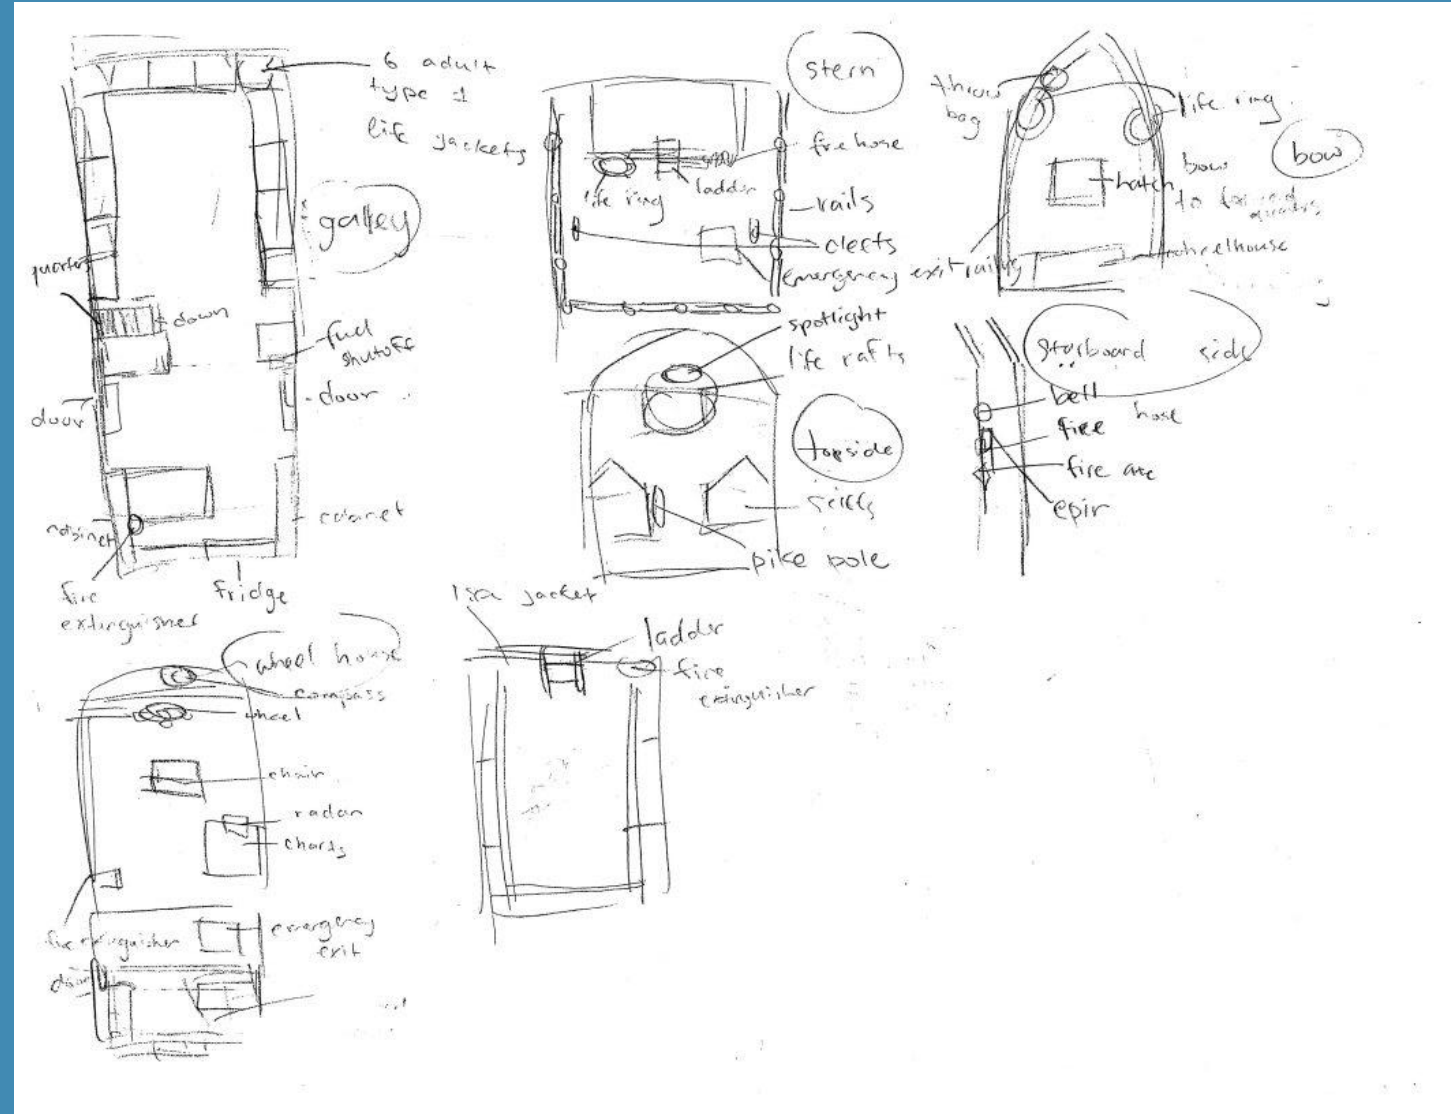 6 adult
type 1
life jackets
galley
quarters
down
fuel
shutoff
door
door
cabinet
cabinet
fire
extinguisher
fridge
stern
fire hose
life ring
ladder
rails
cleets
emergency exit railing
throw
bag
life ring
bow
hatch bow
to
wheelhouse
spotlight
life rafts
topside
skiffs
pike pole
starboard side
bell
fire hose
fire axe
epir
wheel house
compass
wheel
chair
radar
charts
fire extinguisher
emergency
exit
door
jacket
ladder
fire
extinguisher